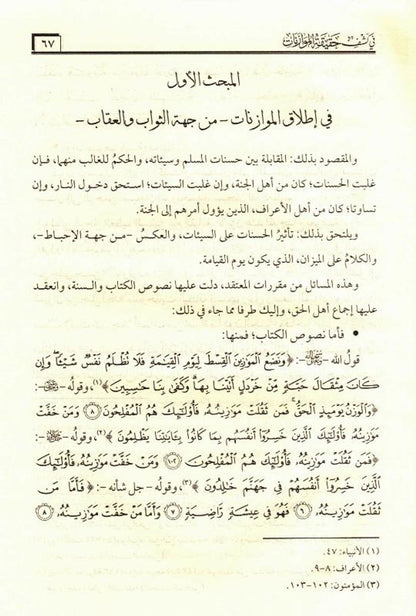 في كشف حقيقة الموازنات
٦٧
المبحث الأول
في إطلاق الموازنات - من جهة الثواب والعقاب -
والمقصود بذلك: المقابلة بين حسنات المسلم وسيئاته، والحكمُ للغالب منهما، فإن
غلبت الحسنات؛ كان من أهل الجنة، وإن غلبت السيئات؛ استحق دخول النار، وإن
تساوتا؛ كان من أهل الأعراف، الذين يؤول أمرهم إلى الجنة.
ويلتحق بذلك: تأثيرُ الحسنات على السيئات، والعكسُ -من جهة الإحباط-،
والكلامُ على الميزان، الذي يكون يوم القيامة.
وهذه المسائل من مقررات المعتقد، دلت عليها نصوص الكتاب والسنة، وانعقد
عليها إجماع أهل الحق، وإليك طرفا مما جاء في ذلك:
• فأما نصوص الكتاب؛ فمنها:
قولُ الله -ﷻ-: ﴿وَنَضَعُ الْمَوَازِينَ الْقِسْطَ لِيَوْمِ الْقِيَامَةِ فَلَا تُظْلَمُ نَفْسٌ شَيْئًا وَإِن
كَانَ مِثْقَالَ حَبَّةٍ مِّنْ خَرْدَلٍ أَتَيْنَا بِهَا وَكَفَىٰ بِنَا حَاسِبِينَ﴾(١)، وقوله -ﷻ-:
﴿وَالْوَزْنُ يَوْمَئِذٍ الْحَقُّ فَمَن ثَقُلَتْ مَوَازِينُهُ فَأُولَٰئِكَ هُمُ الْمُفْلِحُونَ ۝٨ وَمَنْ خَفَّتْ
مَوَازِينُهُ فَأُولَٰئِكَ الَّذِينَ خَسِرُوا أَنفُسَهُم بِمَا كَانُوا بِآيَاتِنَا يَظْلِمُونَ﴾(٢)، وقوله -ﷻ-:
﴿فَمَن ثَقُلَتْ مَوَازِينُهُ فَأُولَٰئِكَ هُمُ الْمُفْلِحُونَ ۝١٠٢ وَمَنْ خَفَّتْ مَوَازِينُهُ فَأُولَٰئِكَ
الَّذِينَ خَسِرُوا أَنفُسَهُمْ فِي جَهَنَّمَ خَالِدُونَ﴾(٣)، وقوله -جل شأنه-: ﴿فَأَمَّا مَن
ثَقُلَتْ مَوَازِينُهُ ۝٦ فَهُوَ فِي عِيشَةٍ رَّاضِيَةٍ ۝٧ وَأَمَّا مَنْ خَفَّتْ مَوَازِينُهُ ۝٨
(١) الأنبياء: ٤٧.
(٢) الأعراف: ٨-٩.
(٣) المؤمنون: ١٠٢-١٠٣.